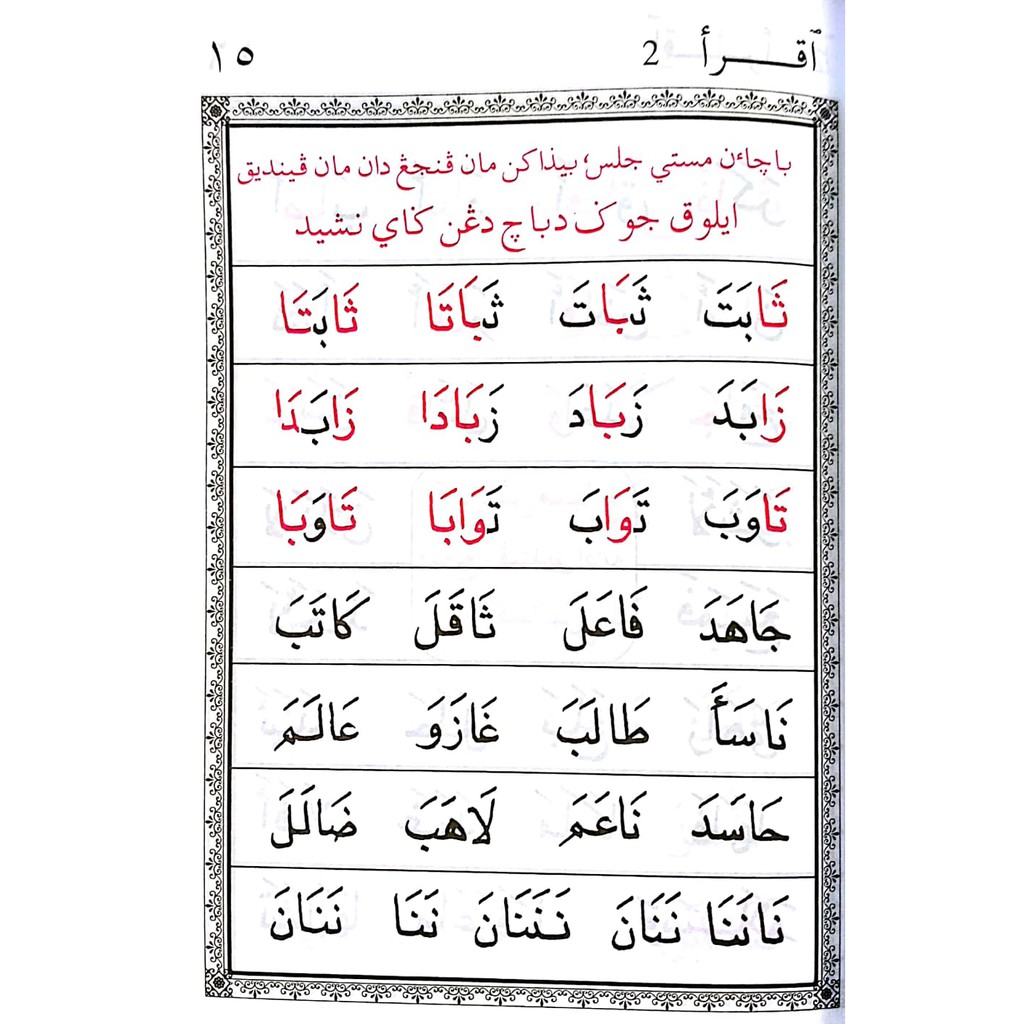 ٱقـــرأ 2 ١٥
باچاءن مستي جلس، بيذاكن مان ڤنجڠ دان مان ڤينديق
ايلوق جوݢ دباچ دڠن ݢاي نشيد
ثَابَتَ ثَبَاتَ ثَبَاتَا ثَابَتَا
زَابَدَ زَبَادَ زَبَادَا زَابَدَا
تَاوَبَ تَوَابَ تَوَابَا تَاوَبَا
جَاهَدَ فَاعَلَ ثَاقَلَ كَاتَبَ
نَاسَأَ طَالَبَ غَازَوَ عَالَمَ
حَاسَدَ نَاعَمَ لَاهَبَ ضَالَلَ
نَانَنَا نَنَانَ نَنَنَانَ نَنَا نَنَانَ